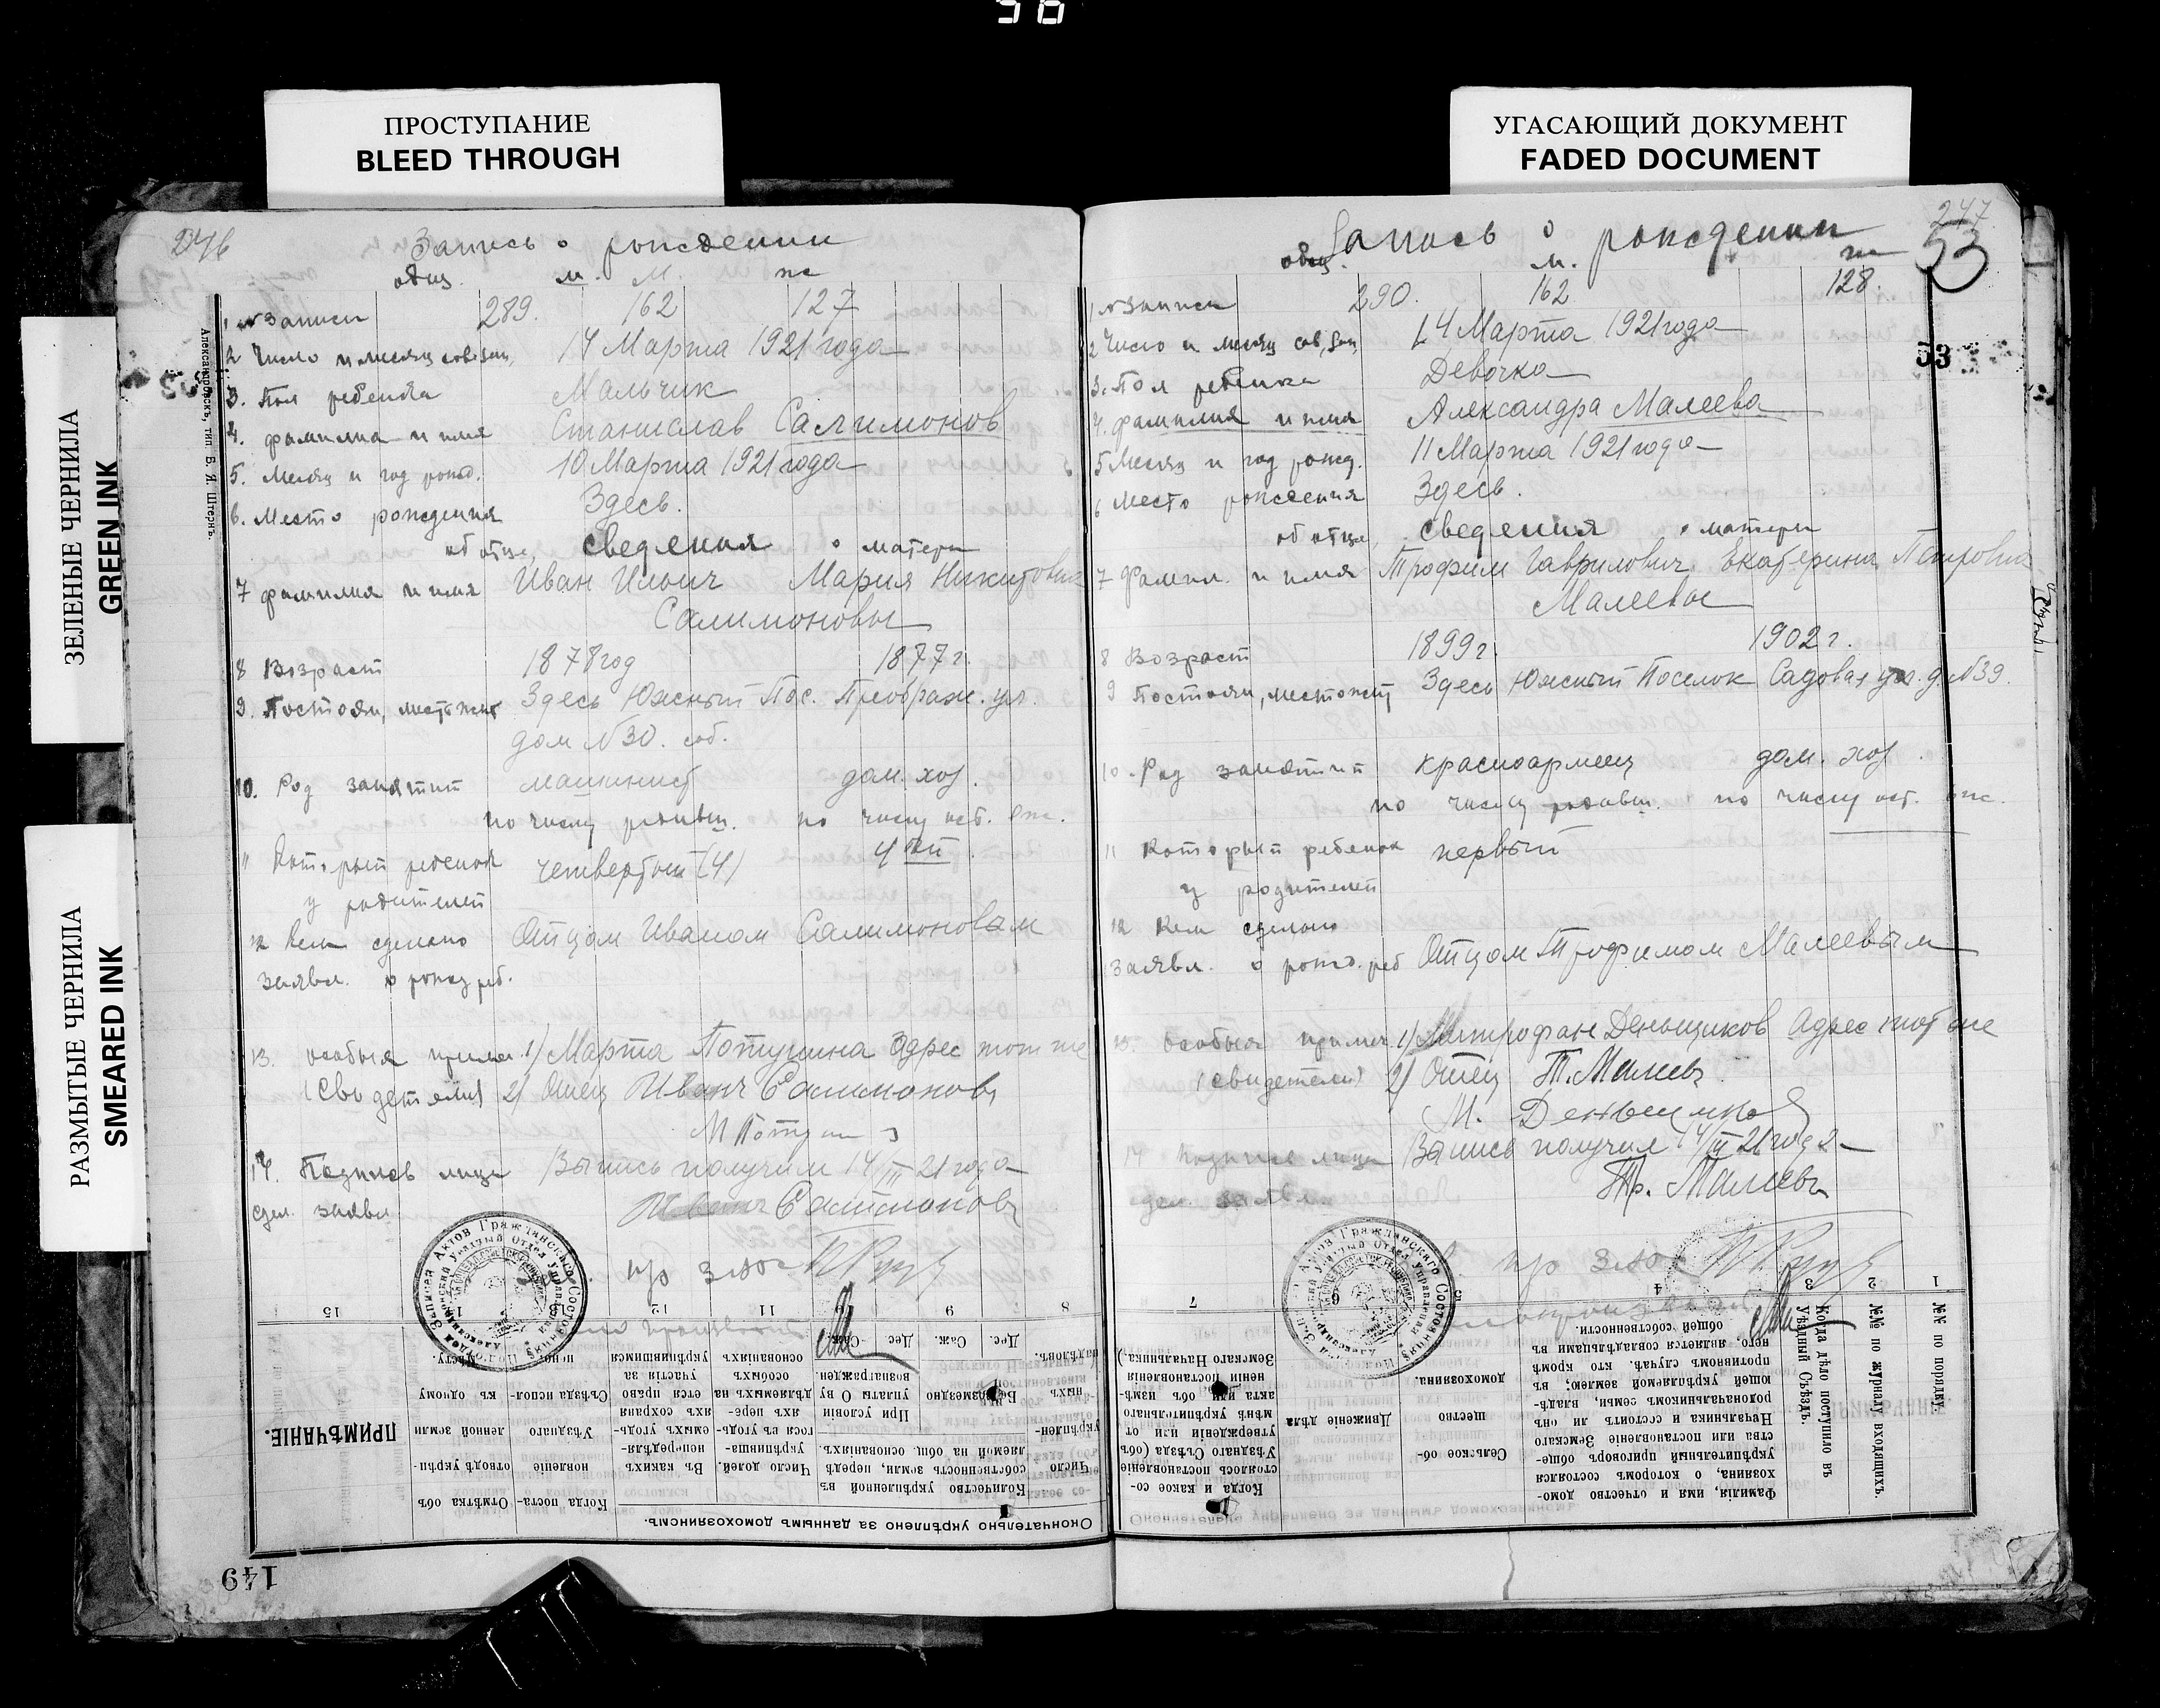 58
ПРОСТУПАНИЕ
BLEED THROUGH
УГАСАЮЩИЙ ДОКУМЕНТ
FADED DOCUMENT
ЗЕЛЕНЫЕ ЧЕРНИЛА
GREEN INK
РАЗМЫТЫЕ ЧЕРНИЛА
SMEARED INK
246
Запись о рождении
общ. м. М. ж
1 № Записи 289. 162 127
2 Число и месяц сов. зап. 14 Марта 1921 года
3. Пол ребенка Мальчик
4. фамилиа и имя Станислав Салимонов
5. Месяц и год рожд. 10 Марта 1921 года
6. Место рождения Здесь.
об отце, сведения о матери
7 фамилия и имя Иван Ильич Мария Никитовна
Салимоновы
8 Возраст 1878 год 1877 г.
9. Постоян, мест. жит Здесь Южный Пос. Преображ. ул.
дом № 30. соб.
10. Род занятий машинист дом. хоз.
по числу родивш. по числу ост. в ж.
11 Который ребенок четвертый (4) 4 ый
у родителей
12 Кем сделано Отцом Иваном Салимоновам
заявл. о рожд реб.
13. особыя примеч. 1) Марта Потушина Адрес тот же
(Свидетели) 2) Отец Иванъ Салимоновъ
14. Подпись лица Выпись получил 14/III 21 года
сдел. заявл Иванъ Салимоновъ
Александровскъ, тип. Б. Я. Штернъ.
15 14 13 12 11 10 9 8
Окончательно укрѣплено за даннымъ домохозяиномъ.
ПРИМѢЧАНІЕ.
Отмѣтка объ отводѣ укрѣпленной земли къ одному мѣсту.
Когда постановленіе Уѣзднаго Съѣзда исполнено.
Въ какихъ нераздѣльныхъ угодьяхъ сохраняется право участія за укрѣпившимся
Число долей.
Количество укрѣпленной въ собственность земли, передѣляемой на общ. основаніяхъ.
При условіи уплаты О ву вознагражден.
Безмездно
Дес. Саж. Дес. Саж.
149
247
53
53
Запись о рождении
общ. м. ж
1 № Записи 290. 162 128.
2 Число и месяц сов, зап, 14 Марта 1921 года
3. Пол ребенка Девочка
4. фамилия и имя Александра Малеева
5 Месяц и год рожд. 11 Марта 1921 года
6 Место рождения Здесь.
об отце, сведения о матери
7 Фамил. и имя Трофим Гаврилович Екатерина Петровна
Малеевы
8 Возраст 1899 г. 1902 г.
9 Постоян, местожит Здесь Южный Поселок Садовая ул. д. № 39.
10. Род занятий красноармеец дом. хоз.
по числу родивш. по числу ост. в ж.
11 Который ребенок первый
у родителей
12 Кем сделано
заявл. о рожд. реб Отцом Трофимом Малеевым
13. Особыя примеч 1) Митрофан Деньщиков Адрес тот же
(свидетели) 2) Отец Т. Малеевъ
М. Деньщиков
14 Подпись лица Выпись получил 14/III 21 года
сдел. заявл. Тр. Малеевъ
7 6 5 4 3 2 1
№№ по порядку.
№№ по журналу входящихъ.
Когда дѣло поступило въ Уѣздный Съѣздъ.
Фамилія, имя и отчество домохозяина, о которомъ состоялся укрѣпительный приговоръ общества или постановленіе Земскаго Начальника и состоитъ ли онъ родоначальникомъ семьи, владѣющей укрѣпляемой землею; въ противномъ случаѣ, кто кромѣ него, является совладѣльцами въ общей собственности.
Сельское общество домохозяина.
Движеніе дѣла
Когда и какое состоялось постановленіе Уѣзднаго Съѣзда (объ утвержденіи или отмѣнѣ укрѣпительнаго акта или объ измѣненіи постановленія Земскаго Начальника.)